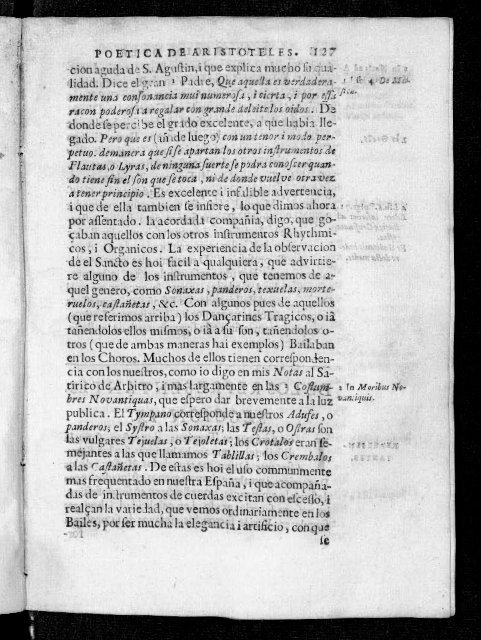 POETICA DE ARISTOTELES. 127
cion aguda de S. Agustin, i que explica mucho su qua-
lidad. Dice el gran ¹ Padre, Que aquella es verdadera-
mente una consonancia mui numerosa, i cierta, i por essa
racon poderosa a regalar con grande deleite los oidos. De
donde se percibe el grado excelente, a que habia lle-
gado. Pero que es (iñ de luego) con un tenor i modo per-
petuo. demanera que si se apartan los otros instrumentos de
Flautas, o Lyras, de ninguna suerte se podra conoscer quan-
do tiene fin el son que se toca, ni de donde vuelve otra vez
a tener principio. Es excelente i infalible advertencia,
i que de ella tambien se infiere, lo que dimos ahora
por assentado. la acordada compañia, digo, que go-
çaban aquellos con los otros instrumentos Rhythmi-
cos, i Organicos. La experiencia de la observacion
de el Sancto es hoi facil a qualquiera, que advirtie-
re alguno de los instrumentos, que tenemos de a-
quel genero, como Sonaxas, panderos, texuelas, morte-
ruelos, castañetas, &c. Con algunos pues de aquellos
(que referimos arriba) los Dançarines Tragicos, o iã
tañendolos ellos mismos, o iã a su son, tañendolos o-
tros (que de ambas maneras hai exemplos) Bailaban
en los Choros. Muchos de ellos tienen corresponden-
cia con los nuestros, como io digo en mis Notas al Sa-
tirico de Arbitro, i mas largamente en las ² Costum-
bres Novantiquas, que espero dar brevemente a la luz
publica. El Tympano corresponde a nuestros Adufes, o
panderos; el Systro a las Sonaxas; las Testas, o Ostras son
las vulgares Tejuelas, o Tejoletas; los Crotalos eran se-
mejantes a las que llamamos Tablillas; los Crembalos
a las Castañetas. De estas es hoi el uso communmente
mas frequentado en nuestra España, i que acompaña-
das de instrumentos de cuerdas excitan con escesso, i
realçan la variedad, que vemos ordinariamente en los
Bailes, por ser mucha la elegancia i artificio, con que
se
De Mu-
sica.
2 In Moribus No-
vantiquis.